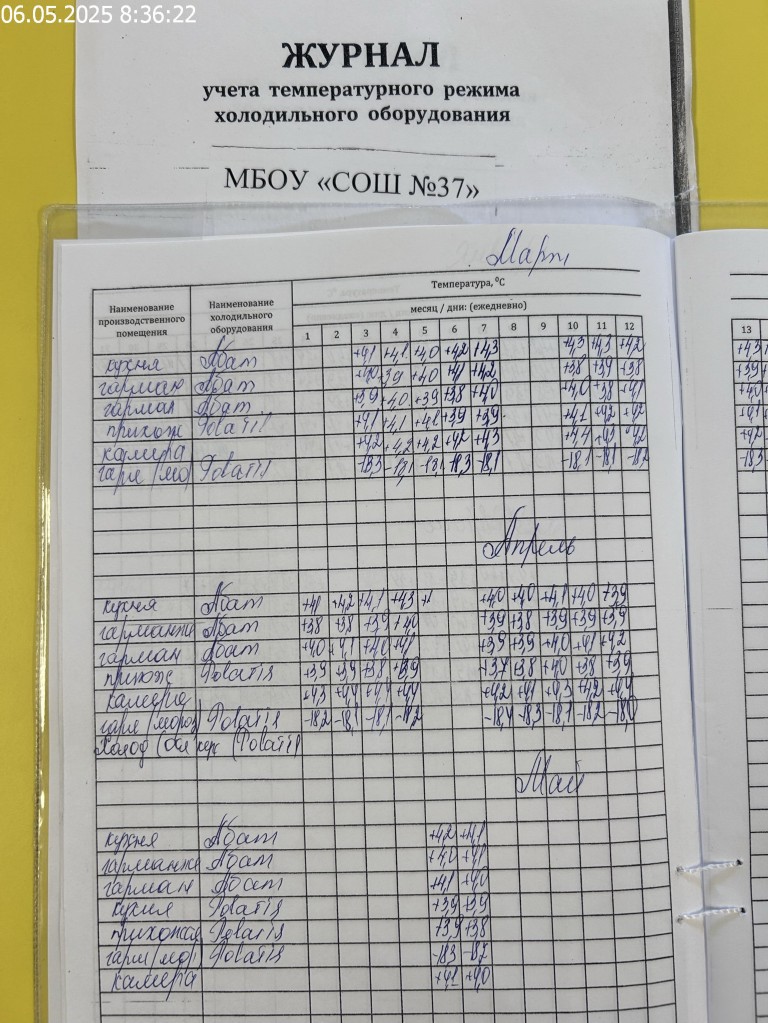 06.05.2025 8:36:22
ЖУРНАЛ
учета температурного режима
холодильного оборудования
МБОУ «СОШ №37»
Март
Наименование производственного помещения
Наименование холодильного оборудования
Температура, °С
месяц / дни: (ежедневно)
1 2 3 4 5 6 7 8 9 10 11 12 13
кухня Абат +4,1 +4,1 +4,0 +4,2 +4,3 +4,3 +4,3 +4,2 +4,3
гарман Абат +4,0 3,9 +4,0 +4,1 +4,2 +3,8 +3,9 +3,8 +3,9
гарман Абат +3,9 +4,0 +3,9 +3,8 +4,0 +4,0 +3,8 +4,1 +4,0
прихож Polatis +4,1 +4,1 +4,1 +3,9 +3,9 +4,1 +4,2 +4,2 +4,1
камера +4,2 +4,2 +4,2 +4,2 +4,3 +4,4 +4,3 +4,2 +4,2
гарм (мо) Polatis -18,1 -18,3 -18,1 -18,1 -18,1 -18,2 -18,3
Апрель
кухня Абат +4,1 +4,2 +4,1 +4,3 +4,0 +4,0 +4,1 +4,0 +3,9
Абат +3,8 +3,8 +3,9 +4,0 +3,9 +3,8 +3,9 +3,9 +3,9
гарман Абат +4,0 +4,1 +4,0 +4,1 +3,9 +3,9 +4,0 +4,1 +4,2
прихож Polatis +3,9 +3,9 +3,8 +3,9 +3,7 +3,8 +4,0 +3,8 +3,9
камера +4,3 +4,4 +4,4 +4,4 +4,2 +4,1 +4,3 +4,2 +4,4
гарм (мороз) Polatis -18,2 -18,1 -18,1 -18,2 -18,4 -18,3 -18,1 -18,2 -18,0
Polatis
Май
кухня Абат +4,2 +4,1
Абат +4,0 +4,1
гарман Абат +4,1 +4,0
кухня Polatis +3,9 +3,9
прихожая Polatis +3,9 +3,8
гарм (мор) Polatis -18,3
камера +4,1 +4,0